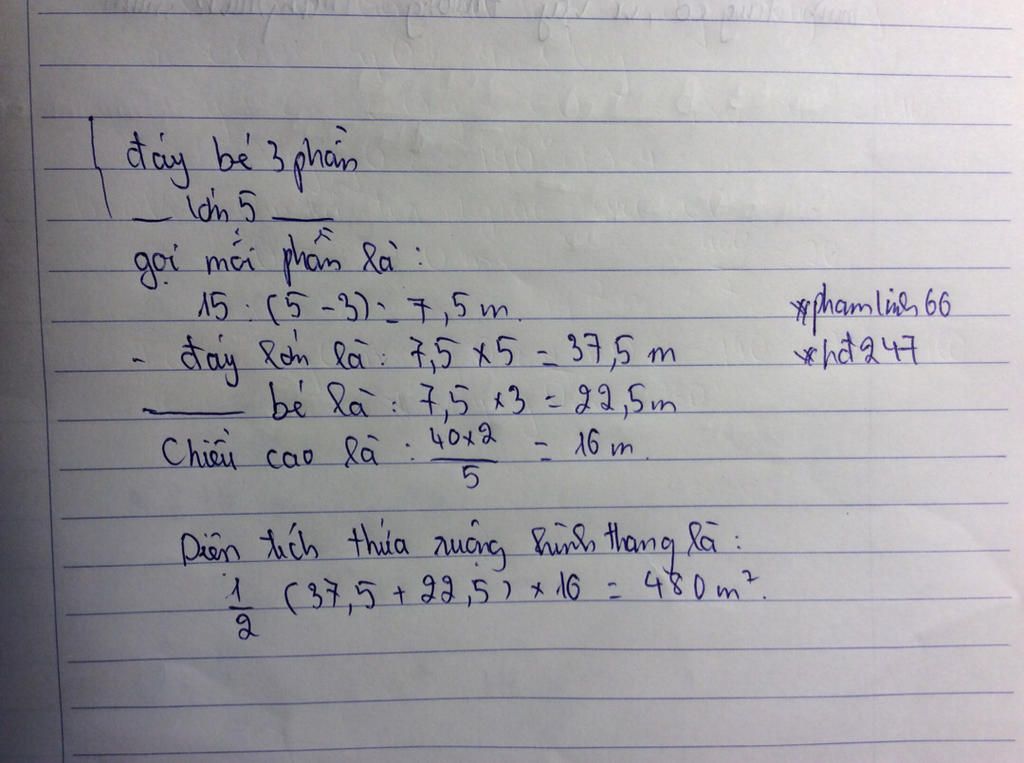 đáy bé 3 phần
— lớn 5 —
gọi mỗi phần là :
15 : (5 - 3) = 7,5 m.
*phamlinh66
- đáy lớn là : 7,5 x 5 = 37,5 m
*hđ247
— bé là : 7,5 x 3 = 22,5 m
Chiều cao là : 40x2/5 = 16 m.
Diện tích thửa ruộng hình thang là :
1/2 (37,5 + 22,5) x 16 = 480 m².